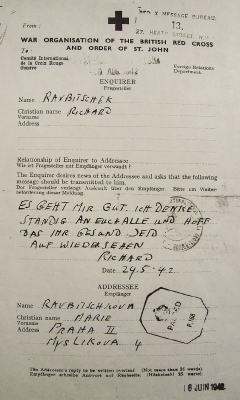 RED X MESSAGE BUREAU.
From :
13.
27, HEATH STREET, N.W.
WAR ORGANISATION OF THE BRITISH RED CROSS
AND ORDER OF ST. JOHN
To :
Comité International
de la Croix Rouge
Genève
Foreign Relations
Department.
ENQUIRER
Fragesteller
Name RAUBITSCHEK
Christian name RICHARD
Vorname
Address
Relationship of Enquirer to Addressee
Wie ist Fragesteller mit Empfänger verwandt ?
The Enquirer desires news of the Addressee and asks that the following
message should be transmitted to him.
Der Fragesteller verlangt Auskunft über den Empfänger. Bitte um Weiter-
beförderung dieser Meldung.
ES GEHT MIR GUT. ICH DENKE
STÄNDIG AN EUCH ALLE UND HOFFE
DAS IHR GESUND SEID
AUF WIEDERSEHEN
RICHARD
Date 29.5.42.
ADDRESSEE
Empfänger
Name RAUBITSCHKOVA
Christian name MARIE
Vorname
Address PRAHA II
MYSLIKOVA 4
PASSED
The Addressee's reply to be written overleaf. (Not more than 25 words).
Empfänger schreibe Antwort auf Rückseite. (Höchstzahl 25 worte).
16 JUIN 1942